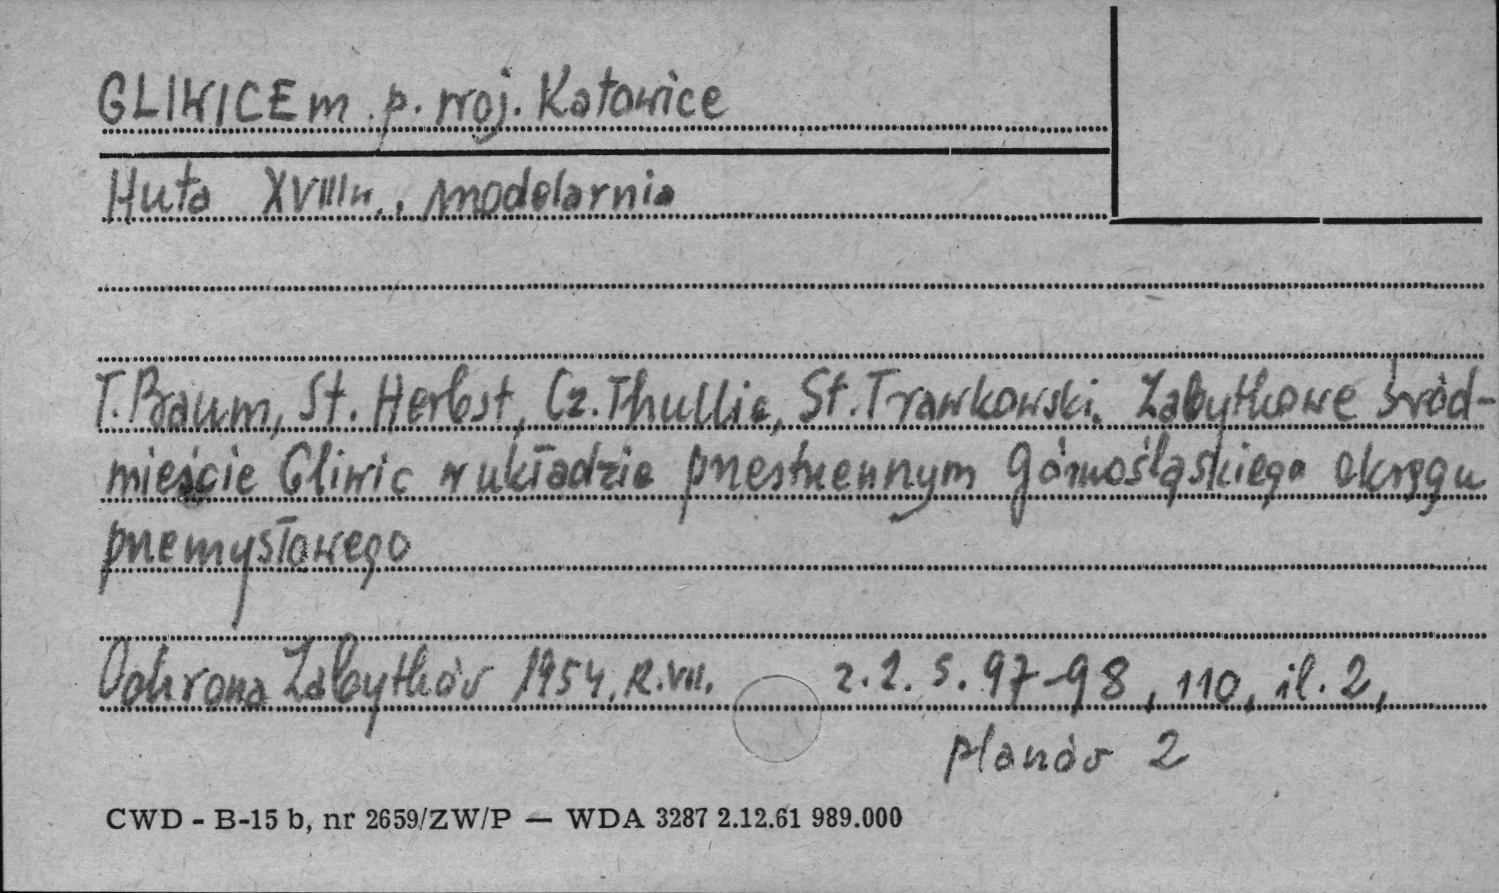 GLIWICE m. p. woj. Katowice
Huta XVIII w., modelarnia
T. Baum, St. Herbst, Cz. Thullie, St. Trawkowski. Zabytkowe śród-
mieście Gliwic w układzie przestrzennym Górnośląskiego okręgu
przemysłowego
Ochrona Zabytków 1954, R. VII. z. 2. s. 97-98, 110, il. 2,
planów 2
CWD - B-15 b, nr 2659/ZW/P — WDA 3287 2.12.61 989.000